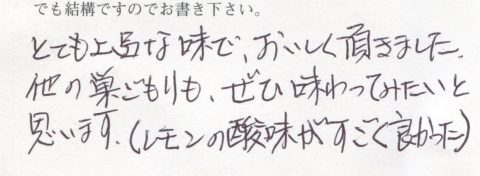 でも結構ですのでお書き下さい。
とても上品な味で、おいしく頂きました.
他の巣ごもりも、ぜひ味わってみたいと
思います.(レモンの酸味がすごく良かった)